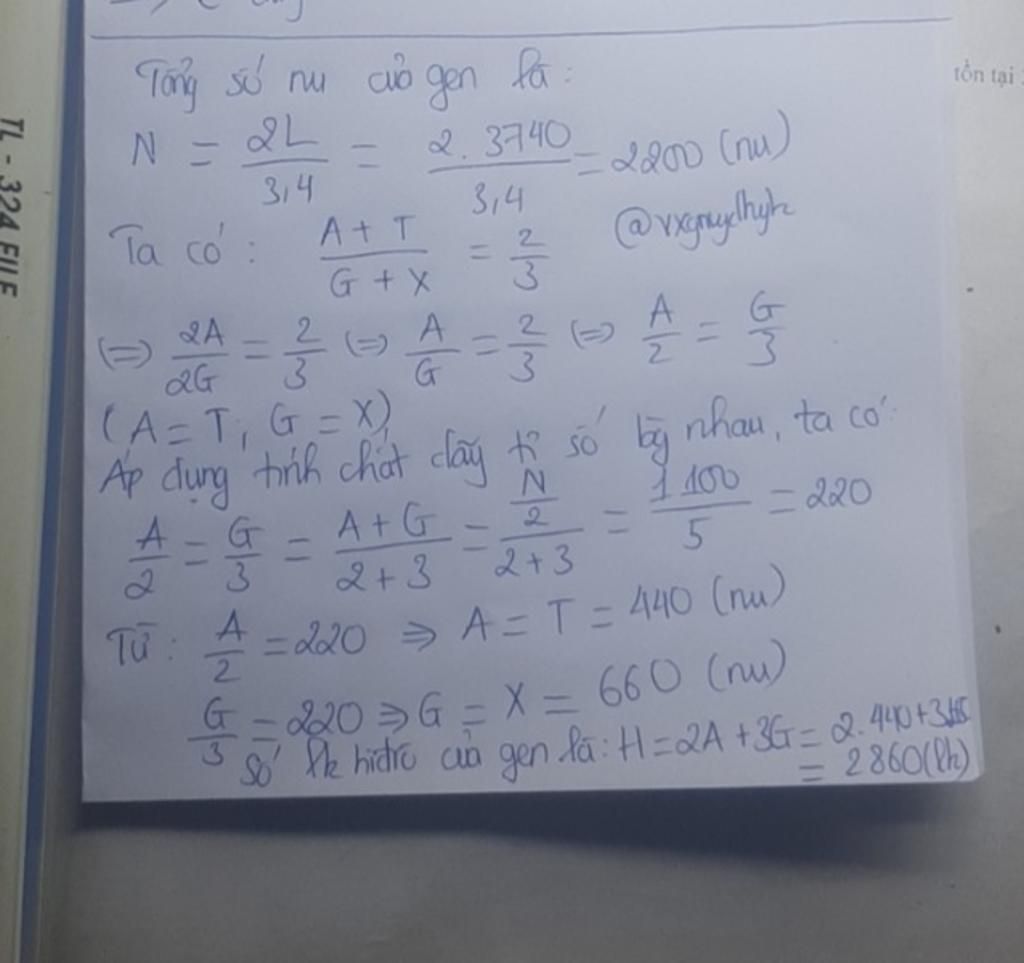 Tổng số nu của gen là:
N = 2L/3,4 = 2.3740/3,4 = 2200 (nu)
Ta có: A + T/G + X = 2/3
(=) 2A/2G = 2/3 (=) A/G = 2/3 (=) A/2 = G/3
(A = T; G = X)
Áp dụng tính chất dãy tỉ số bg nhau, ta có:
A/2 = G/3 = A + G/2 + 3 = N/2/2 + 3 = 1100/5 = 220
Từ: A/2 = 220 => A = T = 440 (nu)
G/3 = 220 => G = X = 660 (nu)
Số lk hiđrô của gen là: H = 2A + 3G = 2.440 +
= 2860 (lk)
TL - 324 FILE
tồn tại